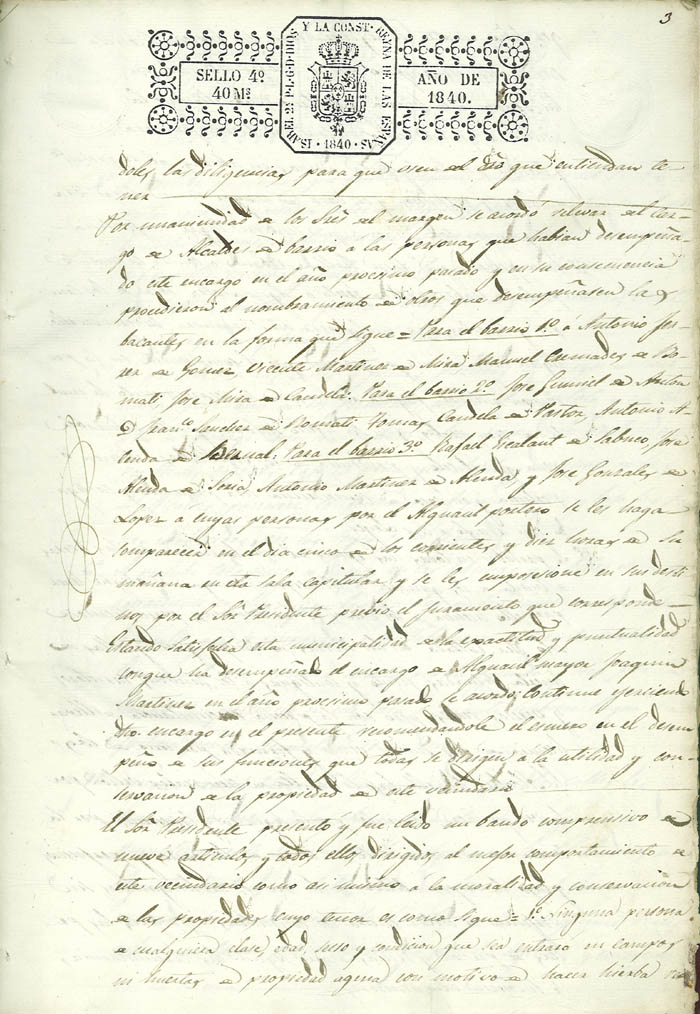 3
SELLO 4º
40 Ms
ISABEL 2ª P.L.G.D.DIOS Y LA CONST. REYNA DE LAS ESPAÑAS
1840
AÑO DE
1840.
doles las diligencias para que usen el dro que entiendan te-
ner
Por unanimidad de los Sres del margen se acordó relevar el car-
go de Alcaldes de barrio a las personas que habian desempeña-
do este encargo en el año procsimo pasado y en su consecuencia
procedieron al nombramiento de otros que desempeñasen las
bacantes en la forma que sigue = Para el barrio 1º á Antonio
de Gomez Vicente Martinez de Mira Manuel Cremades de Bo-
mati Jose Mira de Candela. Para el barrio 2º Jose Gumiel de Anton
Franco Sanchez de Bonmati Tomas Candela de Pastor, Antonio A-
lenda de Pascual. Para el barrio 3º Rafael de Jose
Alenda de Soria Antonio Martinez de Alenda y Jose Gonzales de
Lopez á cuyas personas por el Alguacil portero se les haga
comparecer en el dia cinco de los corrientes y diez horas de su
mañana en esta sala capitular y se les imposesione en sus desti-
nos por el Sor Presidente previo el juramento que corresponde
Estando satisfecha esta municipalidad de la exactitud y puntualidad
conque ha desempeñado el encargo de Alguacil mayor Joaquin
Martinez en el año procsimo pasado se acordó: continue egerciendo
dho. encargo en el presente recomendandole el esmero en el desem-
peño de sus funciones que todas se dirigen á la utilidad y con-
servacion de la propiedad de este vecindario
El Sor Presidente presentó y fue leido un bando comprensivo de
nueve articulos y todos ellos dirigidos al mejor comportamiento de
este vecindario como asi mismo á la moralidad y conservacion
de las propiedades cuyo tenor es como sigue = 1º Ninguna persona
de cualquiera clase, edad, secso y condicion que sea entrará en campos
ni huertas de propiedad agena con motivo de hacer hierba